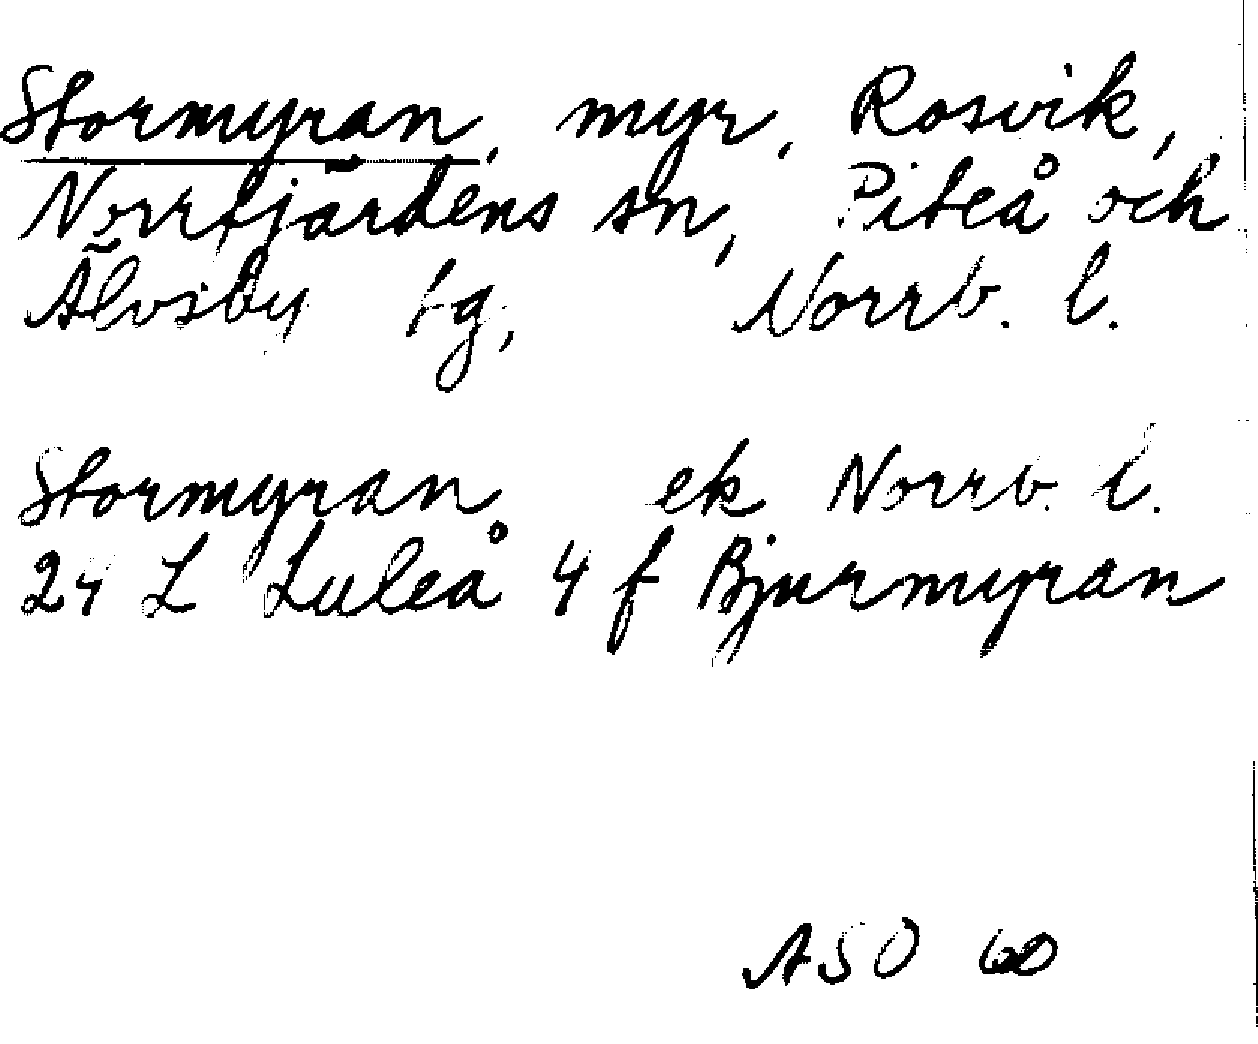 Stormyran, myr, Rosvik,
Norrfjärdens sn, Piteå och
Älvsby tg, Norrb. l.
Stormyran ek Norrb. l.
24 L Luleå 4 f Bjurmyran
ASO 60